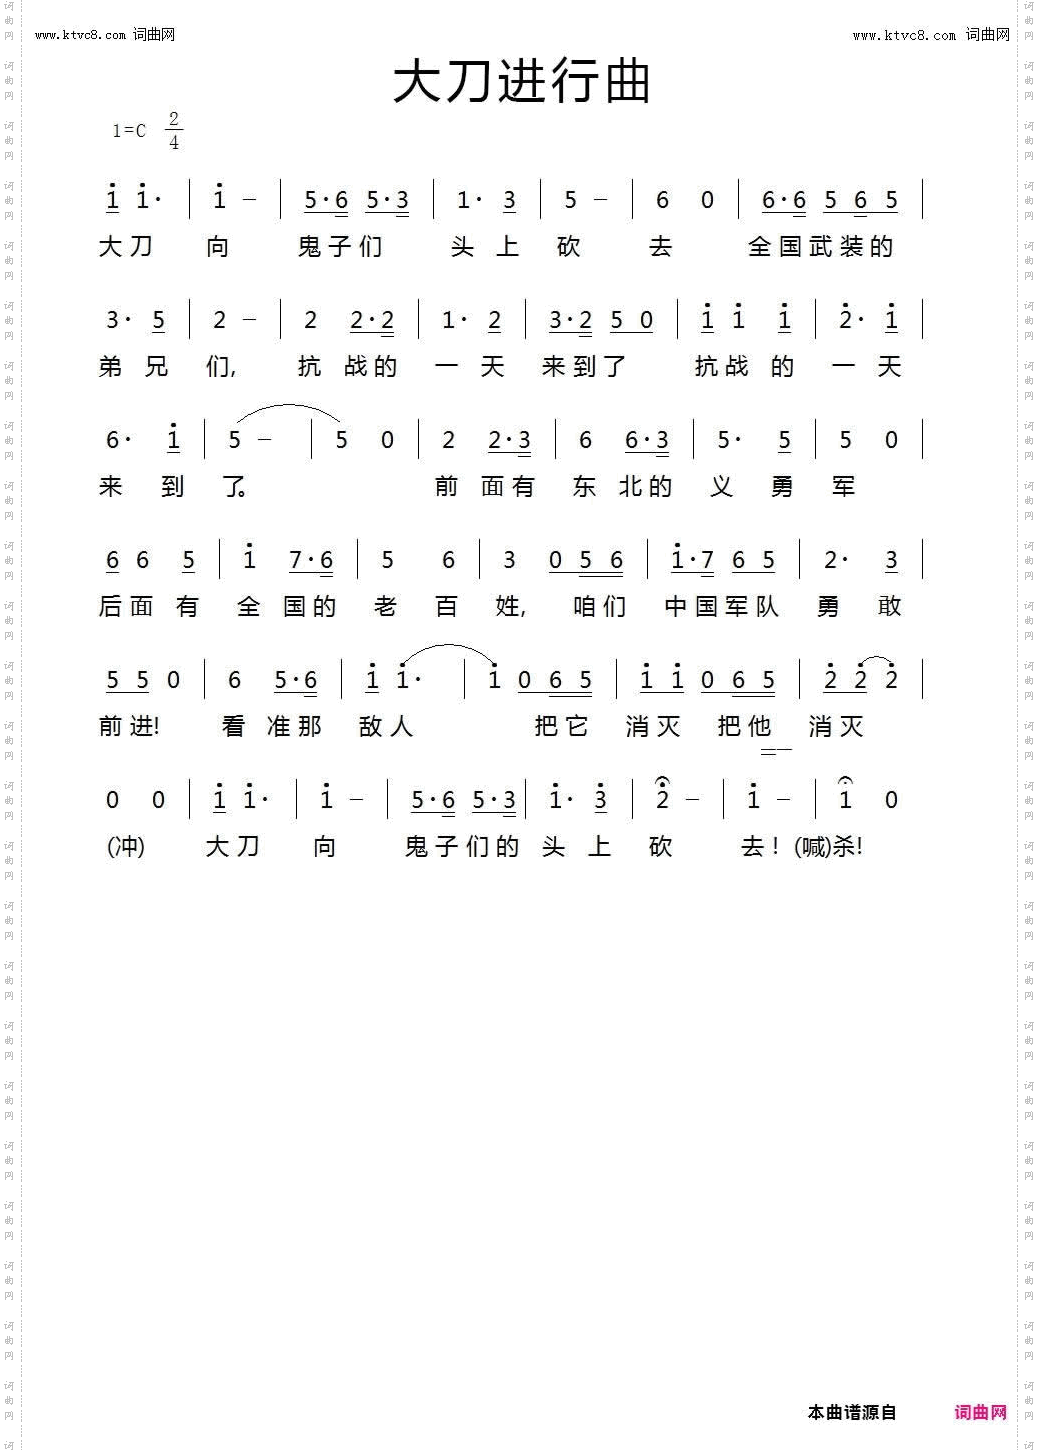 www.ktvc8.com 词曲网
www.ktvc8.com 词曲网
大刀进行曲
1=C 2/4
1 1· | 1 － | 5·6 5·3 | 1· 3 | 5 － | 6 0 | 6·6 5 6 5 |
大刀 向 鬼子们 头 上 砍 去 全国武装的
3· 5 | 2 － | 2 2·2 | 1· 2 | 3·2 5 0 | 1 1 1 | 2· 1 |
弟 兄 们, 抗 战的 一 天 来到了 抗战 的 一 天
6· 1 | 5 － | 5 0 | 2 2·3 | 6 6·3 | 5· 5 | 5 0 |
来 到 了。 前 面有 东 北的 义 勇 军
6 6 5 | 1 7·6 | 5 6 | 3 0 5 6 | 1·7 6 5 | 2· 3 |
后面 有 全 国的 老 百 姓, 咱们 中国军队 勇 敢
5 5 0 | 6 5·6 | 1 1· | 1 0 6 5 | 1 1 0 6 5 | 2 2 2 |
前进! 看 准那 敌人 把它 消灭 把他 消灭
0 0 | 1 1· | 1 － | 5·6 5·3 | 1· 3 | 2 － | 1 － | 1 0
(冲) 大刀 向 鬼子们的 头 上 砍 去！(喊)杀!
本曲谱源自 词曲网